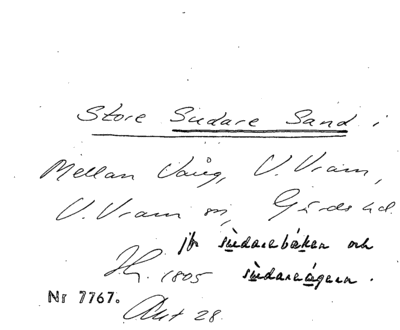 Store Sudare Sand i
Mellan Vång, V. Vram,
V. Vram sn, Gärds hd.
jfr sùdarebä̀ken och
Jh. 1805 sùdareågern.
Nr 7767. Akt 28.